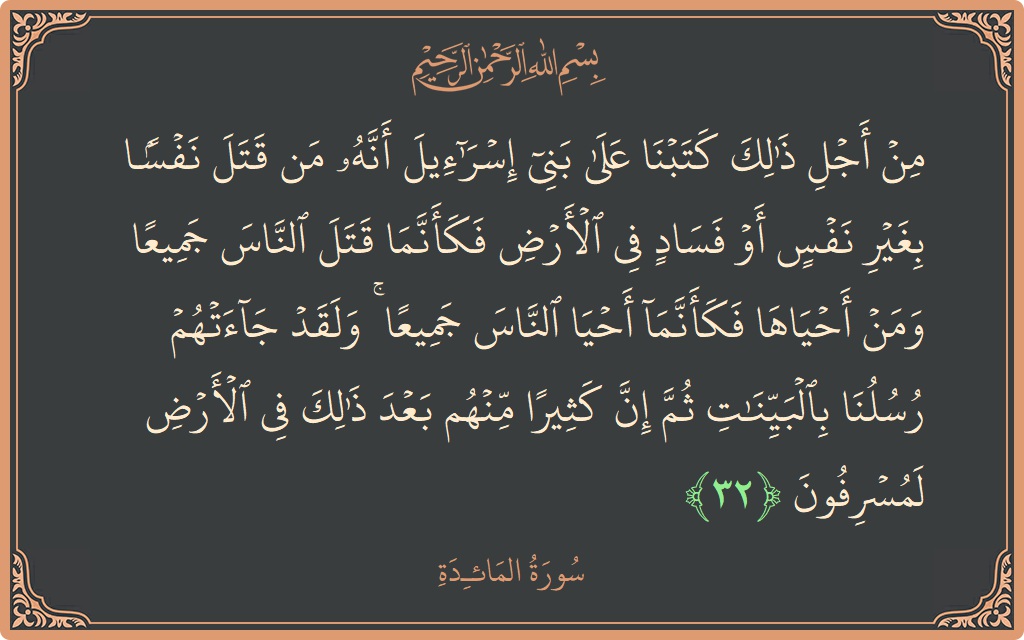 بِسْمِ اللَّهِ الرَّحْمَٰنِ الرَّحِيمِ
مِنۡ أَجۡلِ ذَٰلِكَ كَتَبۡنَا عَلَىٰ بَنِيٓ إِسۡرَٰٓءِيلَ أَنَّهُۥ مَن قَتَلَ نَفۡسَۢا
بِغَيۡرِ نَفۡسٍ أَوۡ فَسَادٖ فِي ٱلۡأَرۡضِ فَكَأَنَّمَا قَتَلَ ٱلنَّاسَ جَمِيعٗا
وَمَنۡ أَحۡيَاهَا فَكَأَنَّمَآ أَحۡيَا ٱلنَّاسَ جَمِيعٗاۚ وَلَقَدۡ جَآءَتۡهُمۡ
رُسُلُنَا بِٱلۡبَيِّنَٰتِ ثُمَّ إِنَّ كَثِيرٗا مِّنۡهُم بَعۡدَ ذَٰلِكَ فِي ٱلۡأَرۡضِ
لَمُسۡرِفُونَ ﴿٣٢﴾
سُورَةُ المَائـِدَةِ